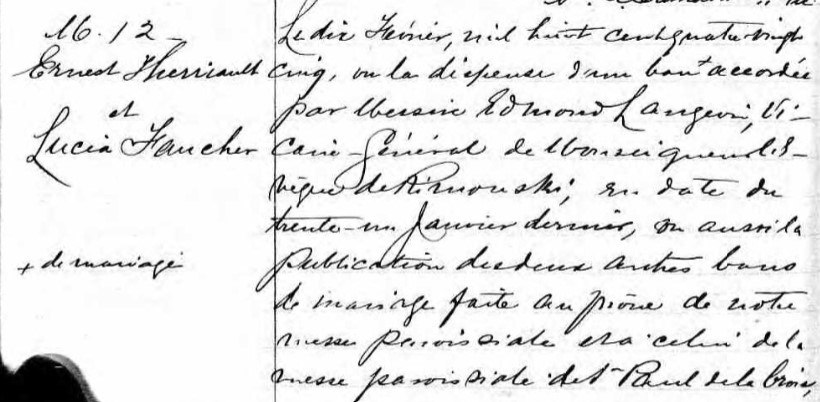 M. 12
Ernest Therriault
et
Lucia Faucher
+ de mariage
Le dix Février, mil huit cent quatre-vingt
cinq, vu la dispense d'un ban + accordée
par Messire Edmond Langevin, Vi-
caire-Général de Monseigneur l'É-
vêque de Rimouski, en date du
trente-un Janvier dernier, vu aussi la
publication des deux autres bans
de mariage faite au prône de notre
messe paroissiale et à celui de la
messe paroissiale de St Paul de la Croix,